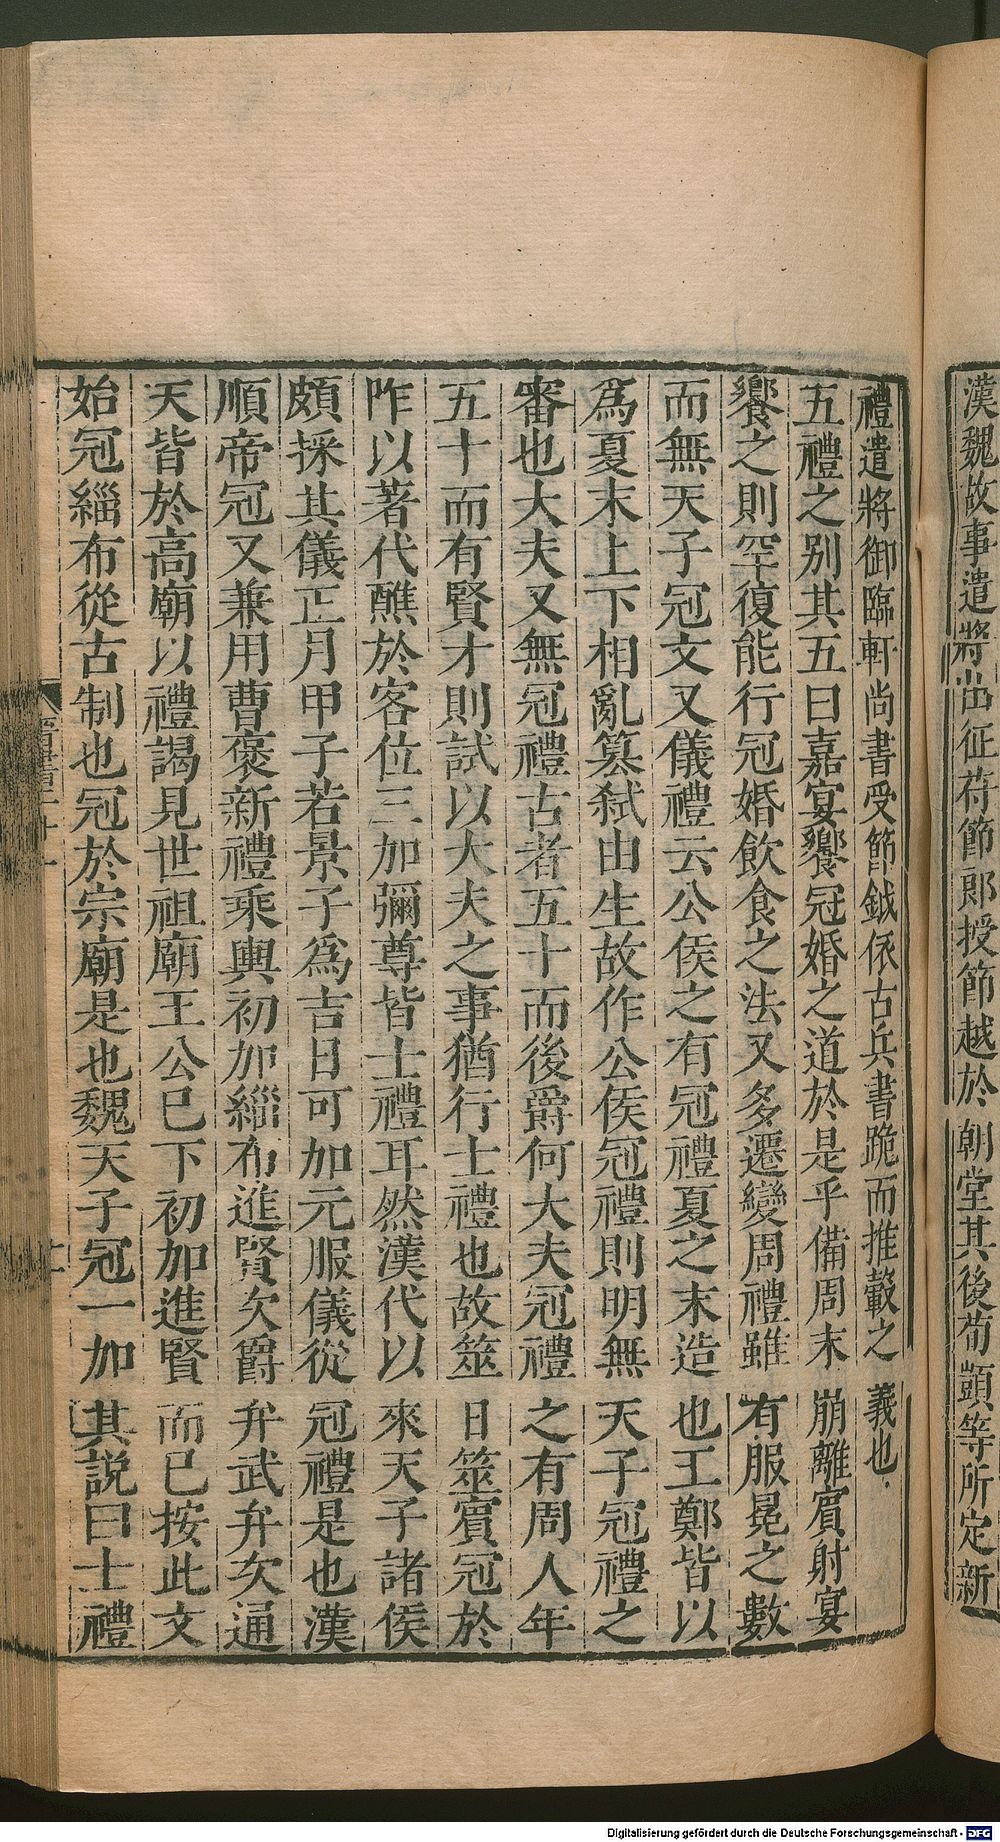 漢魏故事遣將出征苻節郎授節越於朝堂其後荀顗等所定新
禮遣將御臨軒尚書受節鉞依古兵書跪而推轂之義也
五禮之別其五曰嘉宴饗冠婚之道於是乎備周末崩離賓射宴
饗之則罕復能行冠婚飲食之法又多遷變周禮雖有服冕之數
而無天子冠文又儀禮云公侯之有冠禮夏之末造也王鄭皆以
爲夏末上下相亂篡弒由生故作公侯冠禮則明無天子冠禮之
審也大夫又無冠禮古者五十而後爵何大夫冠禮之有周人年
五十而有賢才則試以大夫之事猶行士禮也故筮日筮賓冠於
阼以著代醮於客位三加彌尊皆士禮耳然漢代以來天子諸侯
頗採其儀正月甲子若景子爲吉日可加元服儀從冠禮是也漢
順帝冠又兼用曹褒新禮乘輿初加緇布進賢次爵弁武弁次通
天皆於高廟以禮謁見世祖廟王公已下初加進賢而已按此文
始冠緇布從古制也冠於宗廟是也魏天子冠一加其說曰士禮
晉書二十一
十一
Digitalisierung gefördert durch die Deutsche Forschungsgemeinschaft - DFG